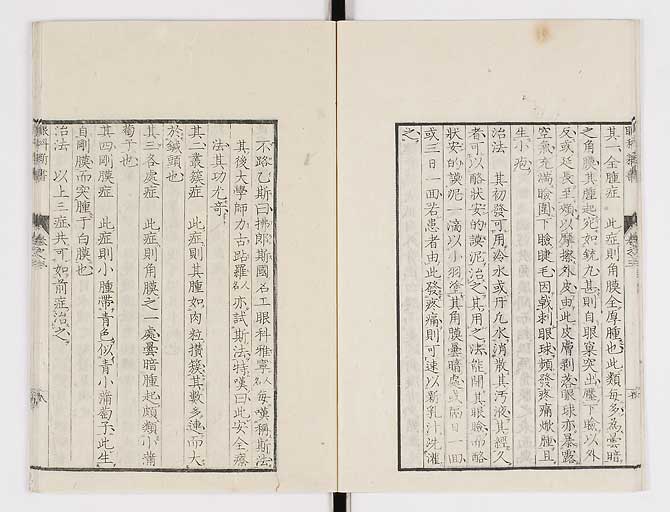 其一、全腫症 此症則角膜全厚腫也、此類每多為曇暗
之角膜、其腫起宛如銃丸、甚則自眼窠突出、壓下瞼以外
反、或延長至頰、以摩擦外皮、由此皮膚剝落、眼球亦暴露
空氣、充滿瞼圍、下瞼睫毛、因戟刺眼球、頻發疼痛焮腫、且
生小疱、
治法 其初發、可用冷水或 水、消散其汚液、其經久
者、可以酪狀安的謨泥治之、其用之法、能開其眼瞼、而酪
狀安的謨泥一滴、以小羽塗其角膜曇暗處、或隔日一回、
或三日一回、若患者由此發疼痛、則可速以新乳汁洗滌
之、
不路乙斯曰、拂郎斯國名工眼科雅寧人名每嘆稱斯法、
其後大學師力古路羅人名亦試斯法、特嘆曰此安全療
法、其功尤奇、
其二叢簇症 此症則其腫如肉粒攢簇、其數多連、而大
於鍼頭也、
其三各處症 此症則角膜之一處曇暗腫起、頗類小蒲
萄子也、
其四剛膜症 此症則小腫帶青色、似青小蒲萄子、此生
自剛膜、而突腫于白膜也、
治法 以上三症、共可如前症治之、
眼科新書